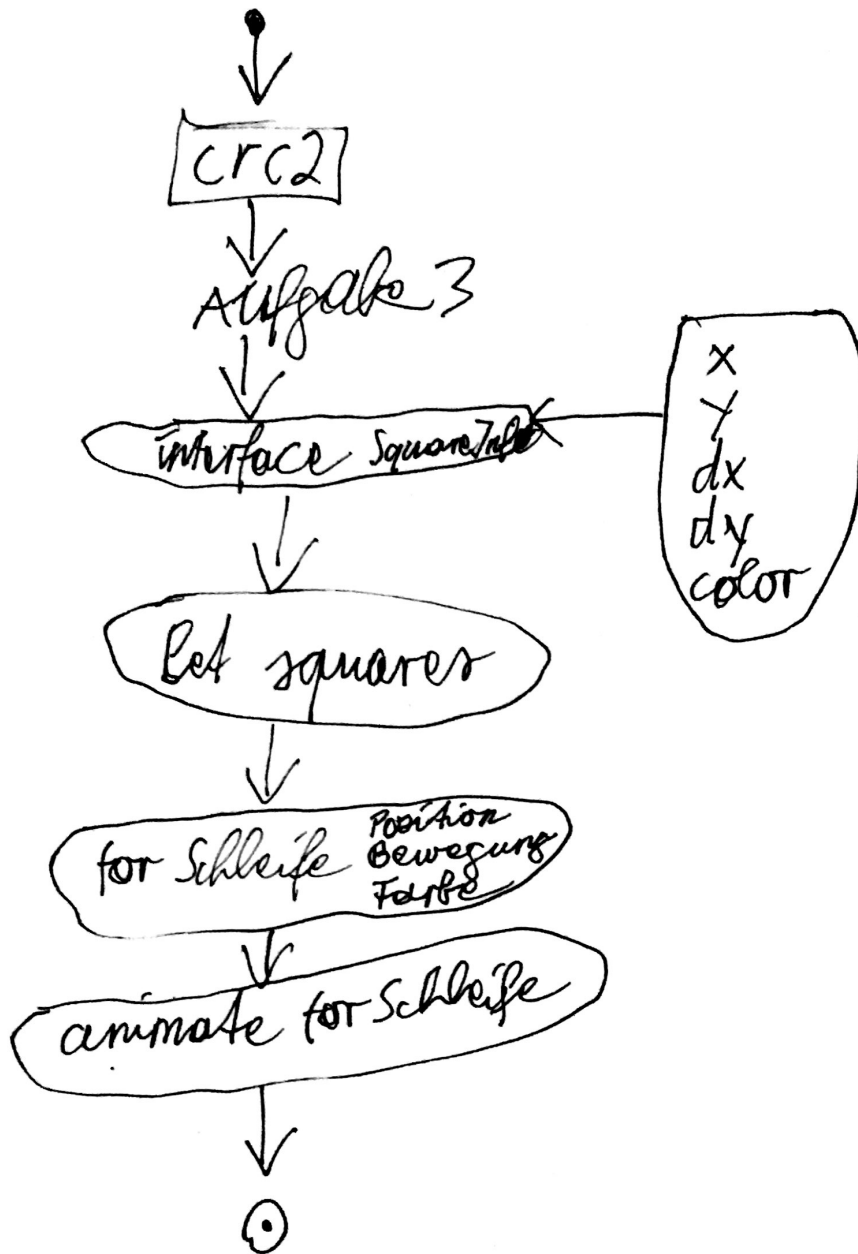 crc2
Aufgabe 3
interface SquareInfo
x
y
dx
dy
color
let squares
for Schleife Position
Bewegung
Farbe
animate for Schleife